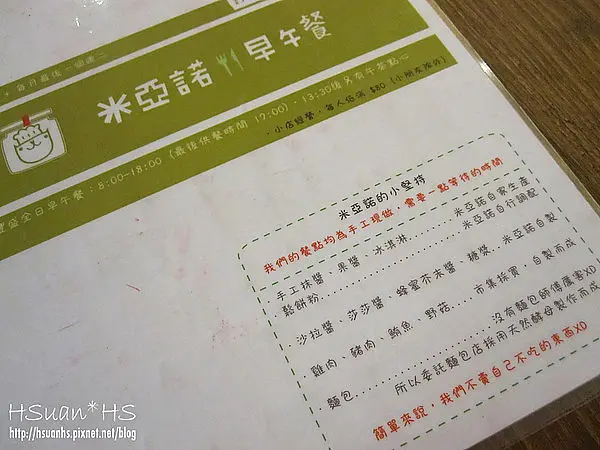 每月最後一個週二
米亞諾 早午餐
豐盛全日早午餐：8:00-18:00（最後供餐時間 17:00）．13:30後另有午茶點心
．小店經營，每人低消 $80（小朋友除外）
米亞諾的小堅持
我們的餐點均為手工現做，需要一點等待的時間
手工抹醬、果醬、冰淇淋..........米亞諾自家生產
鬆餅粉..........米亞諾自行調配
沙拉醬、莎莎醬、蜂蜜芥末醬、糖漿、米亞諾自製
雞肉、豬肉、鮪魚、野菇.....市集採買，自製而成
麵包..........沒有麵包師傅厲害XD
所以委託麵包店採用天然酵母製作而成
簡單來說，我們不賣自己不吃的東西XD
HSuan*HS
http://hsuanhs.pixnet.net/blog